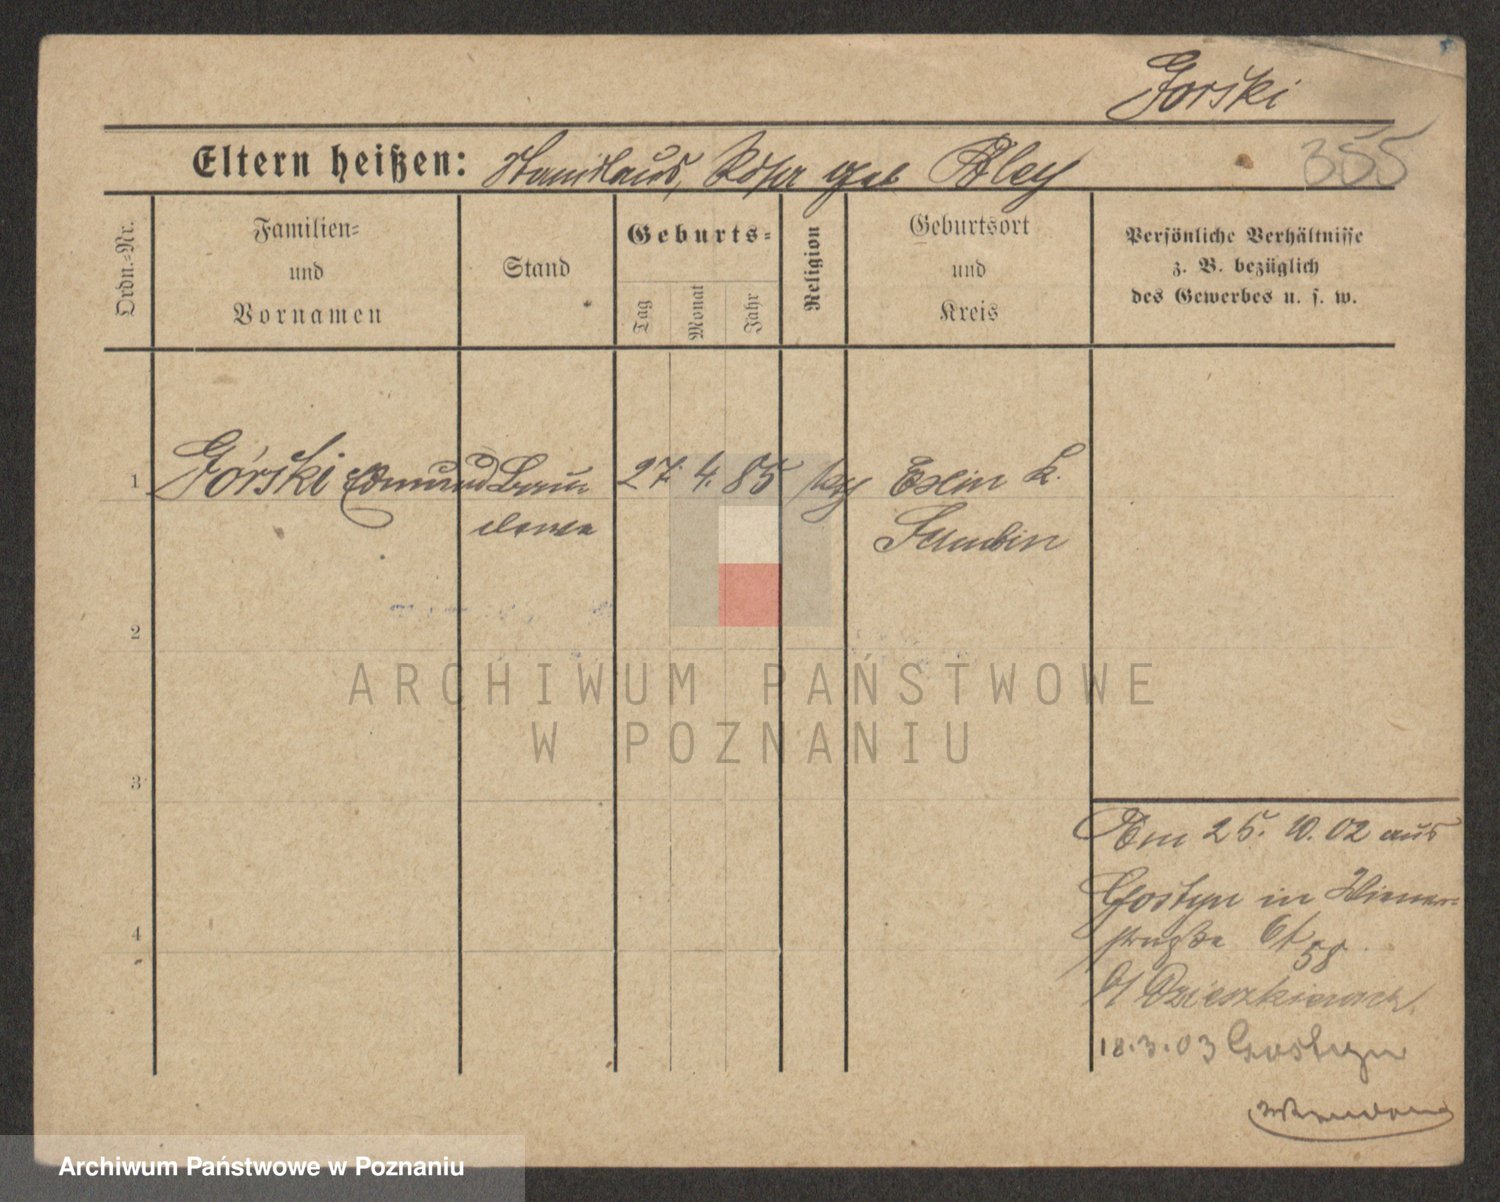 Gorski
Eltern heißen: Stanislaus, Rosa geb Bley
355
Ordn.-Nr.
Familien-
und
Vornamen
Stand
Geburts-
Tag
Monat
Jahr
Religion
Geburtsort
und
Kreis
Persönliche Verhältnisse
z. B. bezüglich
des Gewerbes u. s. w.
1 Górski Edmund 27. 4. 85 Exin K.
Schubin
2
3
4
Am 25. 10. 02 aus
Gostyn in Wiener-
straße 6
58
18.3.03 Gostyn
ARCHIWUM PAŃSTWOWE
W POZNANIU
Archiwum Państwowe w Poznaniu